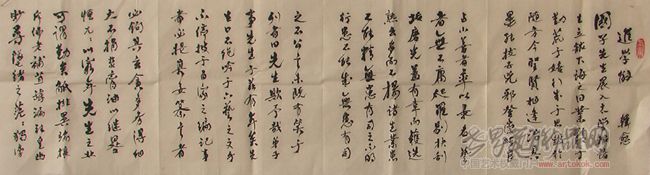 進學解 韓愈
國子先生晨入太學招諸
生立館下誨之曰業精于
勤荒于嬉行成于思毀于
隨方今聖賢相逢治具
畢張拔去兇邪登崇畯良
占小善者率以錄名一藝
者無不庸爬羅剔抉刮
垢磨光蓋有幸而獲選
孰云多而不揚諸生業患
不能精無患有司不明
行患不能成無患有司
之不公言未既有笑于
列者曰先生欺余哉弟子
事先生于茲有年矣先
生口不絕吟于六藝之文手
不停披于百家之編記事
者必提其要纂言者
必鉤其玄貪多務得細
大不捐焚膏油以繼晷
恒兀兀以窮年先生之業
可謂勤矣觝排異端攘
斥佛老補苴罅漏張皇幽
眇尋墜緒之茫茫獨旁
www.artokok.com